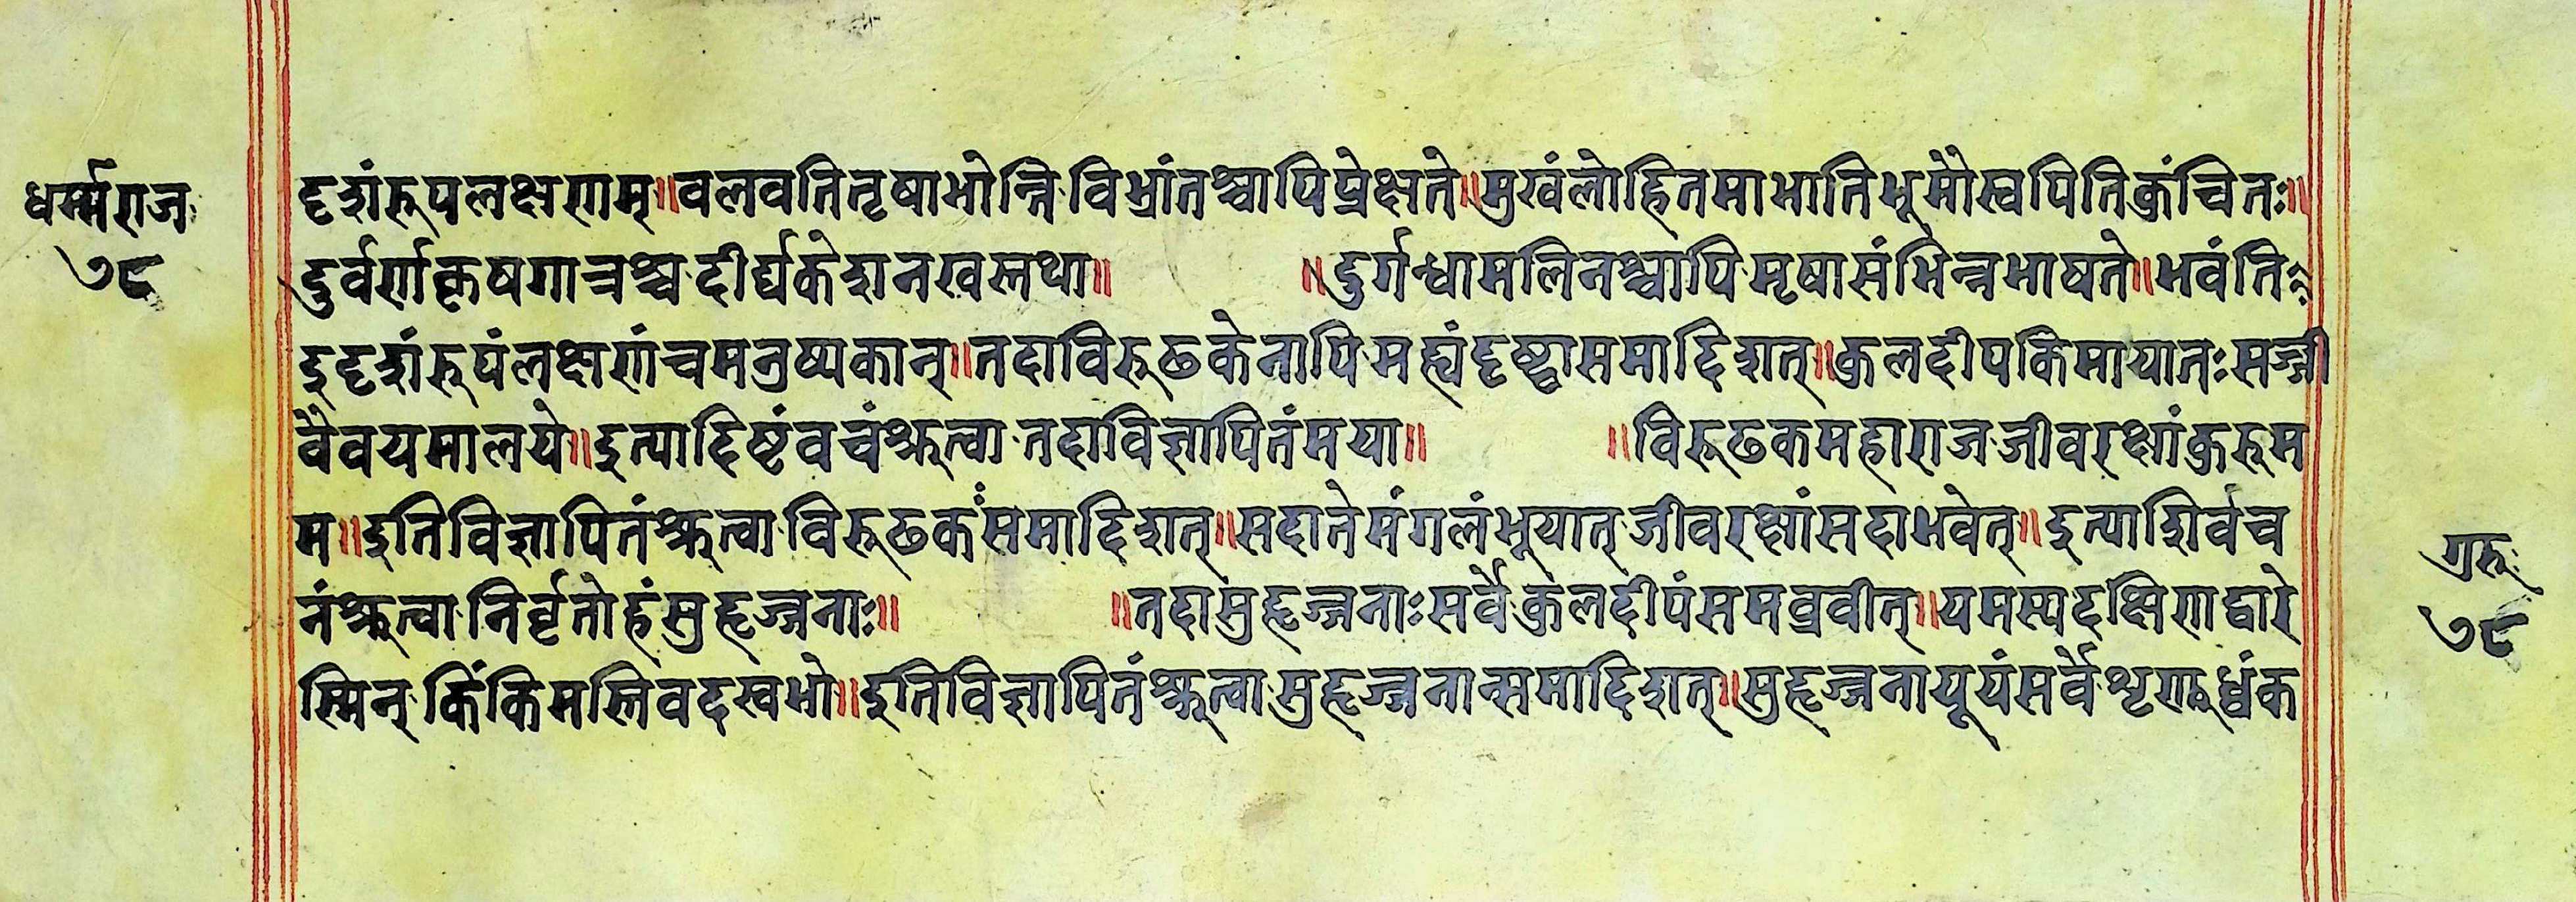 धर्म्मराज
७८
दृशंरूपलक्षणम्॥वलवतितृषाभोन्नि विभ्रांतश्चापिप्रेक्षते॥मुखंलोहितमाभातिभूमौस्वपितिकुंचितः॥
दुर्वर्णाकृषगात्रश्च दीर्घकेशनखस्तथा॥ ॥दुर्गन्धामलिनश्चापि मृषासंभिन्नभाषते॥भवंति
इदृशंरूपंलक्षणंचमनुष्यकान्॥तदाविरूढकेनापि मह्यंदृष्ट्वासमादिशत्॥कुलदीपकिमायातः सज्जी
वैवयमालये॥इत्यादिष्टंवचंश्रुत्वा तदाविज्ञापितंमया॥ ॥विरूढकमहाराज जीवरक्षांकुरूम
म॥इतिविज्ञापितंश्रुत्वा विरूढकंसमादिशत्॥सदातेमंगलंभूयात् जीवरक्षांसदाभवेत्॥इत्याशिर्वच
नंश्रुत्वा निर्वृतोहंसुहृज्जनाः॥ ॥तदासुहृज्जनाःसर्वे कुलदीपंसमव्रवीत्॥यमस्यदक्षिणद्वारे
स्मिन् किंकिमस्तिवदखभो॥इतिविज्ञापितंश्रुत्वा सुहृज्जनान्समादिशत्॥सुहृज्जनायूयंसर्वे शृणुध्वंक
गुरुः
७८